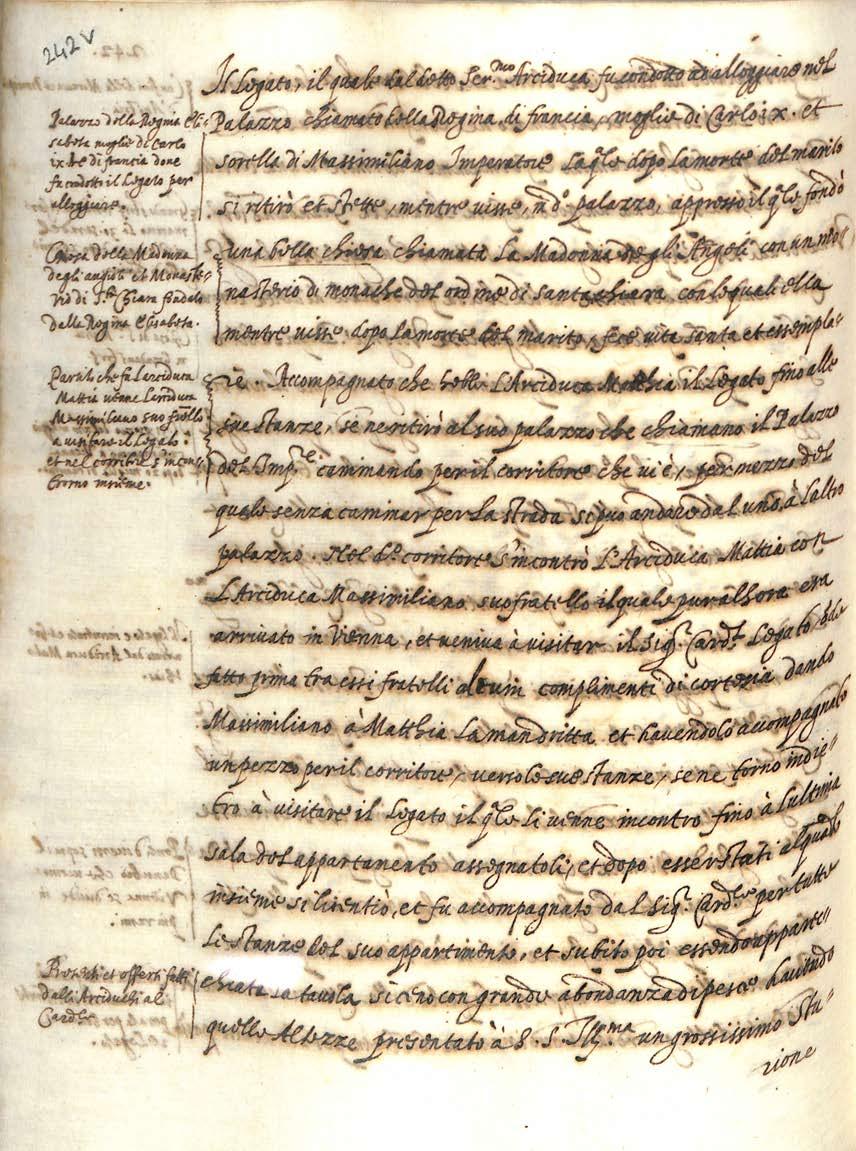 242 v
Palazzo della Regina Eli:
sabeta moglie di Carlo
ix. Re di francia doue
fu condotto il Legato per
alloggiare.
Chiesa della Madonna
degli angioli et Monaste:
rio di S.ta Chiara fondato
dalla Regina Elisabeta.
Partito che fu l'arciduca
Mattia uenne l'arciduca
Massimiliano suo fratello
a uisitare il Legato:
et nel corritore s'incon:
trorno insieme.
Presenti et offerti fatti
dalli Arciduchi al
Card.le
Il Legato, il quale dal detto Ser.mo Arciduca fu condotto ad alloggiare nel
Palazzo chiamato della Regina di francia, moglie di Carlo ix. et
sorella di Massimiliano Imperatore la q.le dopo la morte del marito
si ritirò et stette, mentre uisse, in d.o palazzo, appresso il q.le fondò
una bella chiesa chiamata La Madonna degli Angeli con un mo
nasterio di monache del ordine di santa chiara con le quali ella
mentre uisse dopo la morte del marito, fece uita santa et essempla:
re. Accompagnato che hebbe L'Arciduca Matthia il Legato fino alle
sue stanze, se ne ritirò al suo palazzo che chiamano il Palazzo
del Imp.re caminando per il corritore che ui è, per mezzo del
quale senza caminar per la strada si può andare dal uno, à l'altro
palazzo. Nel d.o corritore s'incontrò L'Arciduca Mattia con
L'Arciduca Massimiliano suo fratello il quale pur alhora era
arriuato in Vienna, et ueniua à uisitar il Sig.r Card.le Legato,
fatto prima tra essi fratelli alcuni complimenti di cortesia dando
Massimiliano à Matthia la man dritta et hauendolo accompagnato
un pezzo per il corritore, uerso le sue stanze, se ne torno indie:
tro à uisitare il Legato il q.le li uenne incontro fino à l'ultima
sala del appartamento assegnatoli, et dopo esser stati alquanto
insieme si licentiò, et fu accompagnato dal Sig.r Card.le per tutte
le stanze del suo appartimento, et subito poi essendo apparec:
chiata la tauola si ceno con grande abondanza di pesce hauendo
quelle Altezze presentato à S. S. Ill.ma un grossissimo Stu:
rione